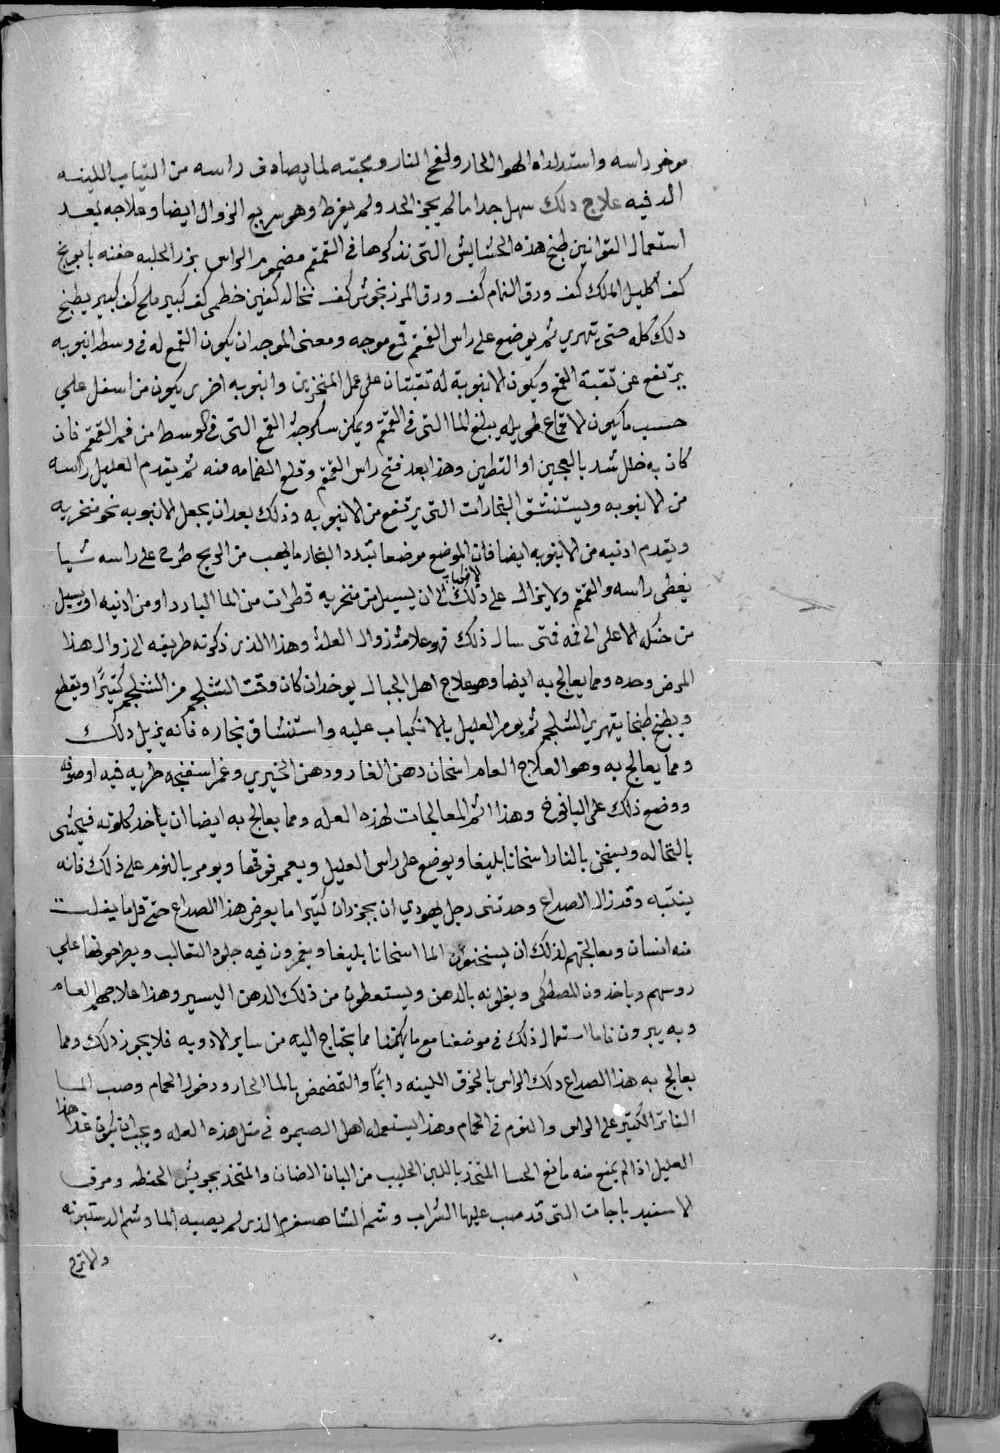 موخر راسه واستلذاذه الهوا الحار ولفح النار ومحبته لما يصادف راسه من الثياب اللينه
الدفيه علاج ذلك سهل جدا ما لم يجز الحد ولم يفرط وهو سريع الزوال ايضا وعلاجه بعد
استعمال القوانين طبخ هذه الحشايش التى نذكرها فى القمقم مضموم الراس بزر الحلبه حفنه بابونج
كف اكليل الملك كف ورق النمام كف ورق المرزنجوش كف نخاله كفين خطمى كف كبير ملح كف كبير يطبخ
ذلك كله حتى يتهرى ثم يوضع على راس القمقم قمع موجه ومعنى الموجه ان يكون القمع له فى وسط انبوبه
يرتفع عن ثقبة القمع ويكون لانبوبة له ثقبتان على عمل المنخرين وانبوبه اخرى يكون من اسفل على
حسب ما يكون لاقماع طويله يبلغ الما التى فى القمقم ويمكن سكرجة القمع التى فى الوسط من فم القمقم فان
كان به خلل شد بالعجين او التطين وهذا بعد فتح راس القمقم وقلع الضمامه منه ثم يقدم العليل راسه
من لانبوبه ويستنشق البخارات التى يرتفع من لانبوبه وذلك بعد ان يجعل لانبوبه نحو منخريه
ويقدم اذنيه من لانبوبه ايضا فان الموضع موضعا تبدد البخار ما يهب من الريح طرح على راسه شيا
يغطى راسه والقمقم ولا يزال على ذلك الى ان يسيل من منخريه قطرات من الما البارد او من اذنيه او يسيل
من حنكه الاعلى الى فمه فمتى سال ذلك فهو علامة زوال العلة وهذا الذى ذكرته طريقه الى زوال هذا
المرض وحده ومما يعالج به ايضا وهو علاج اهل الجبال يوخذ ان كان وقت الشلجم من الشلجم كثيرًا ويقطع
ويطبخ طبخا يتهرى الشلجم ثم يومر العليل بالانكباب عليه واستنشاق بخاره فانه يزيل ذلك
ومما يعالج به وهو العلاج العام اسخان دهن الغار ودهن الخيرى وغمر اسفنجه طريه فيه او صوفه
ووضع ذلك على اليافوخ وهذا اتم المعالجات لهذه العله ومما يعالج به ايضا ان ياخذ كلوته فيحشى
بالنخاله ويسخن بالنار اسخانا بليغا ويوضع على راس العليل ويعمم فوقها ويومر بالنوم على ذلك فانه
ينتبه وقد زال الصداع وحدثنى رجل يهودى ان بجرذان كثيرا ما يعرض هذا الصداع حتى قل ما يفلت
منه انسان ومعالجتهم لذلك ان يسخنون الما اسخانا بليغا ويغمرون فيه جلود الثعالب ويطرحونها على
روسهم وياخذون المصطكى ويغلونه بالدهن ويستعطون من ذلك الدهن اليسير وهذا علاجهم العام
وبه يبرون فاما استعمال ذلك فى موضعنا مع ما يمكننا مما يحتاج اليه من ساير الادويه فلا يجوز ذلك ومما
يعالج به هذا الصداع دلك الراس بالخرق اللينه دايمًا والتمضمض بالما الحار ودخول الحمام وصب الما
الفاتر الكثير على الراس والنوم فى الحمام وهذا يستعمله اهل الصيمره فى مثل هذه العله ويجب ان يكون غذا هذا
العليل اذا لم يمنع منه مانع الحسا المتخذ باللبن الحليب من البان الضان والمتخذ بجريش الحنطه ومرق
لاسفيدباجات التى قد صب عليها الشراب وشم الشاهسفرم الذى لم يصيبه الما وشم الدستبويه
والاترج